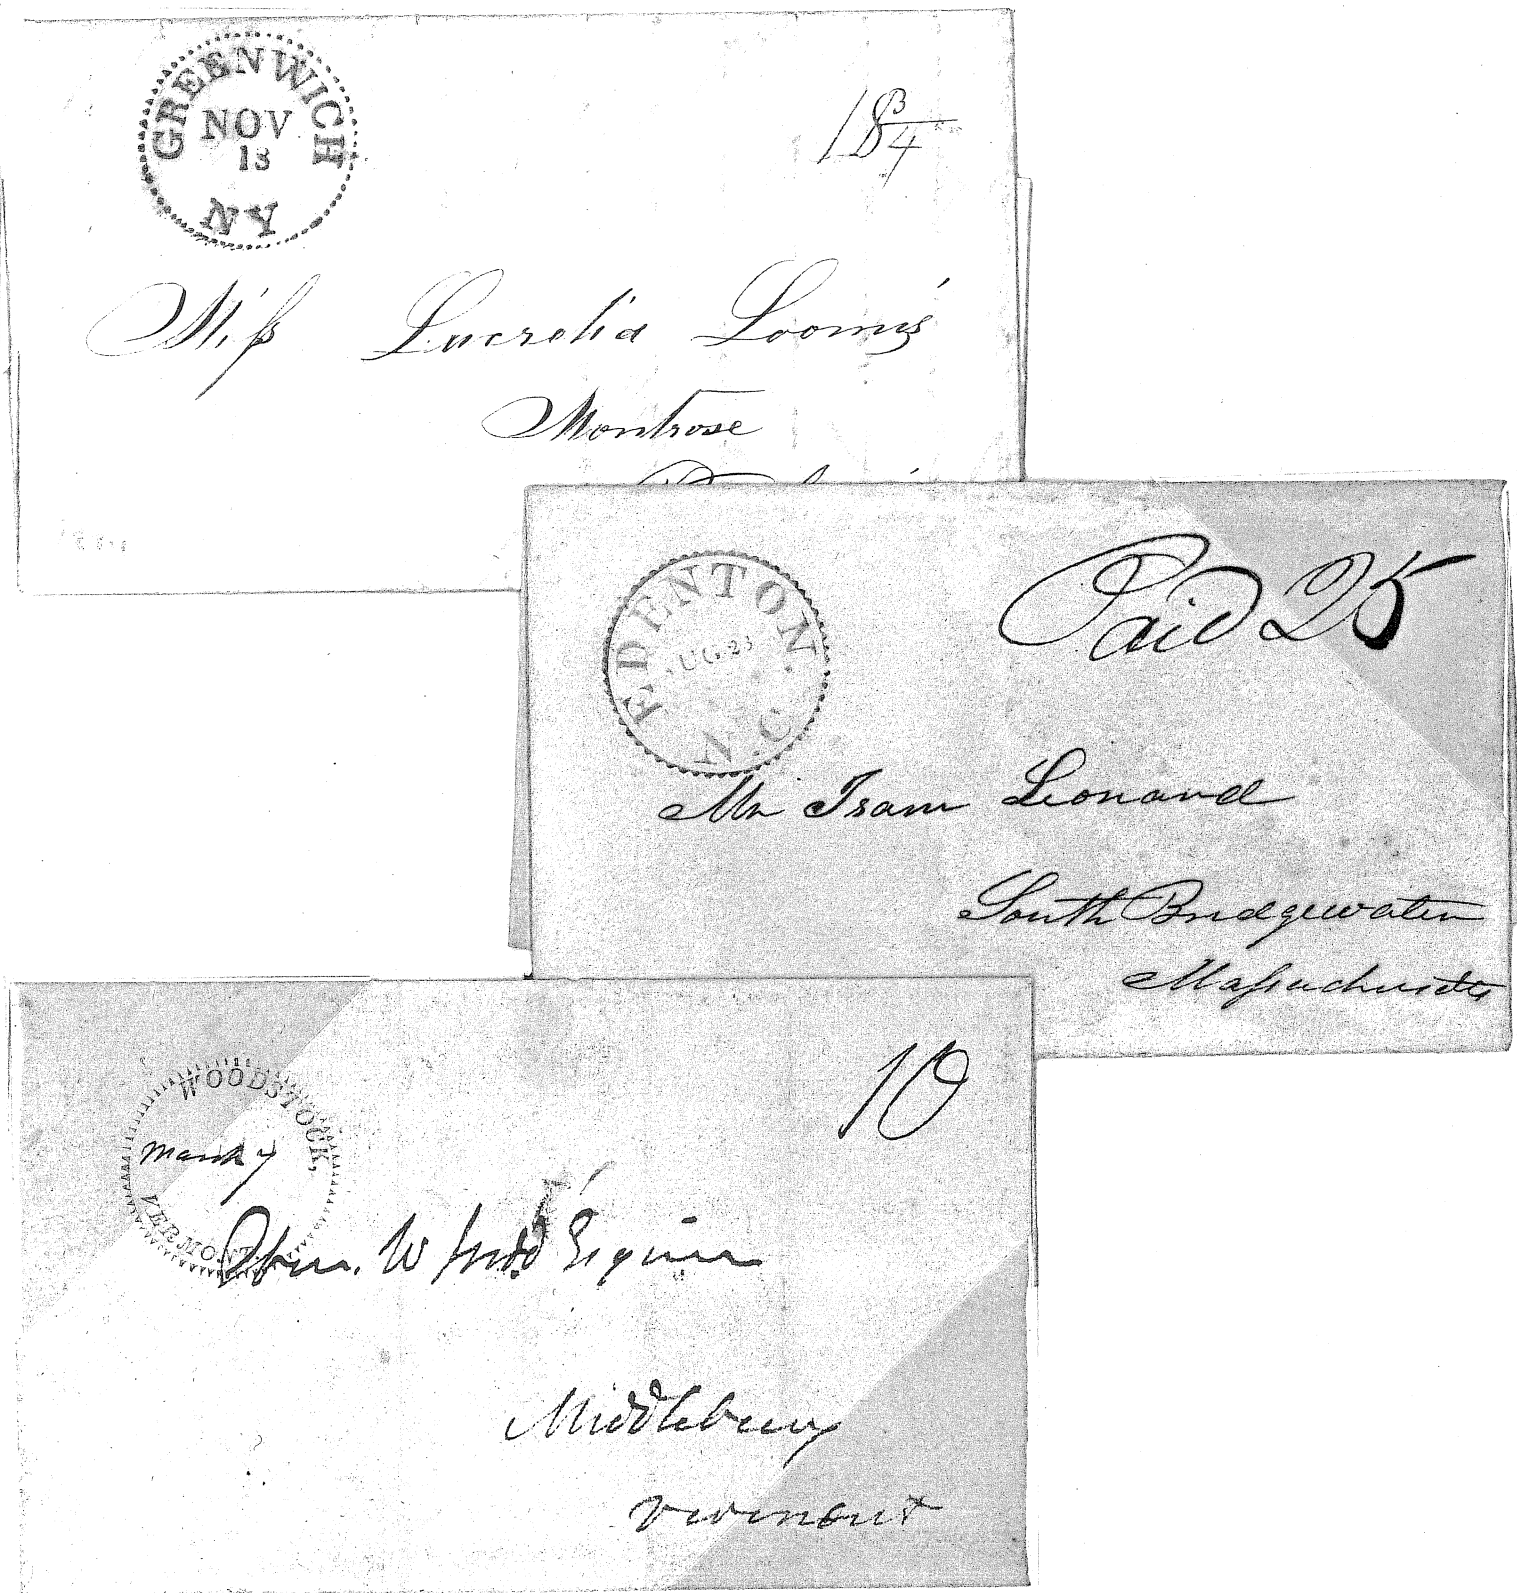 GREENWICH
NOV
13
NY
18 3/4
Miss Lucretia Loomis
Montrose
EDENTON.
AUG 23
N.C.
Paid 25
Mr Isaac Leonard
South Bridgewater
Massachusetts
WOODSTOCK,
March 7
VERMONT.
10
W Judd Esquire
Middlebury
Vermont